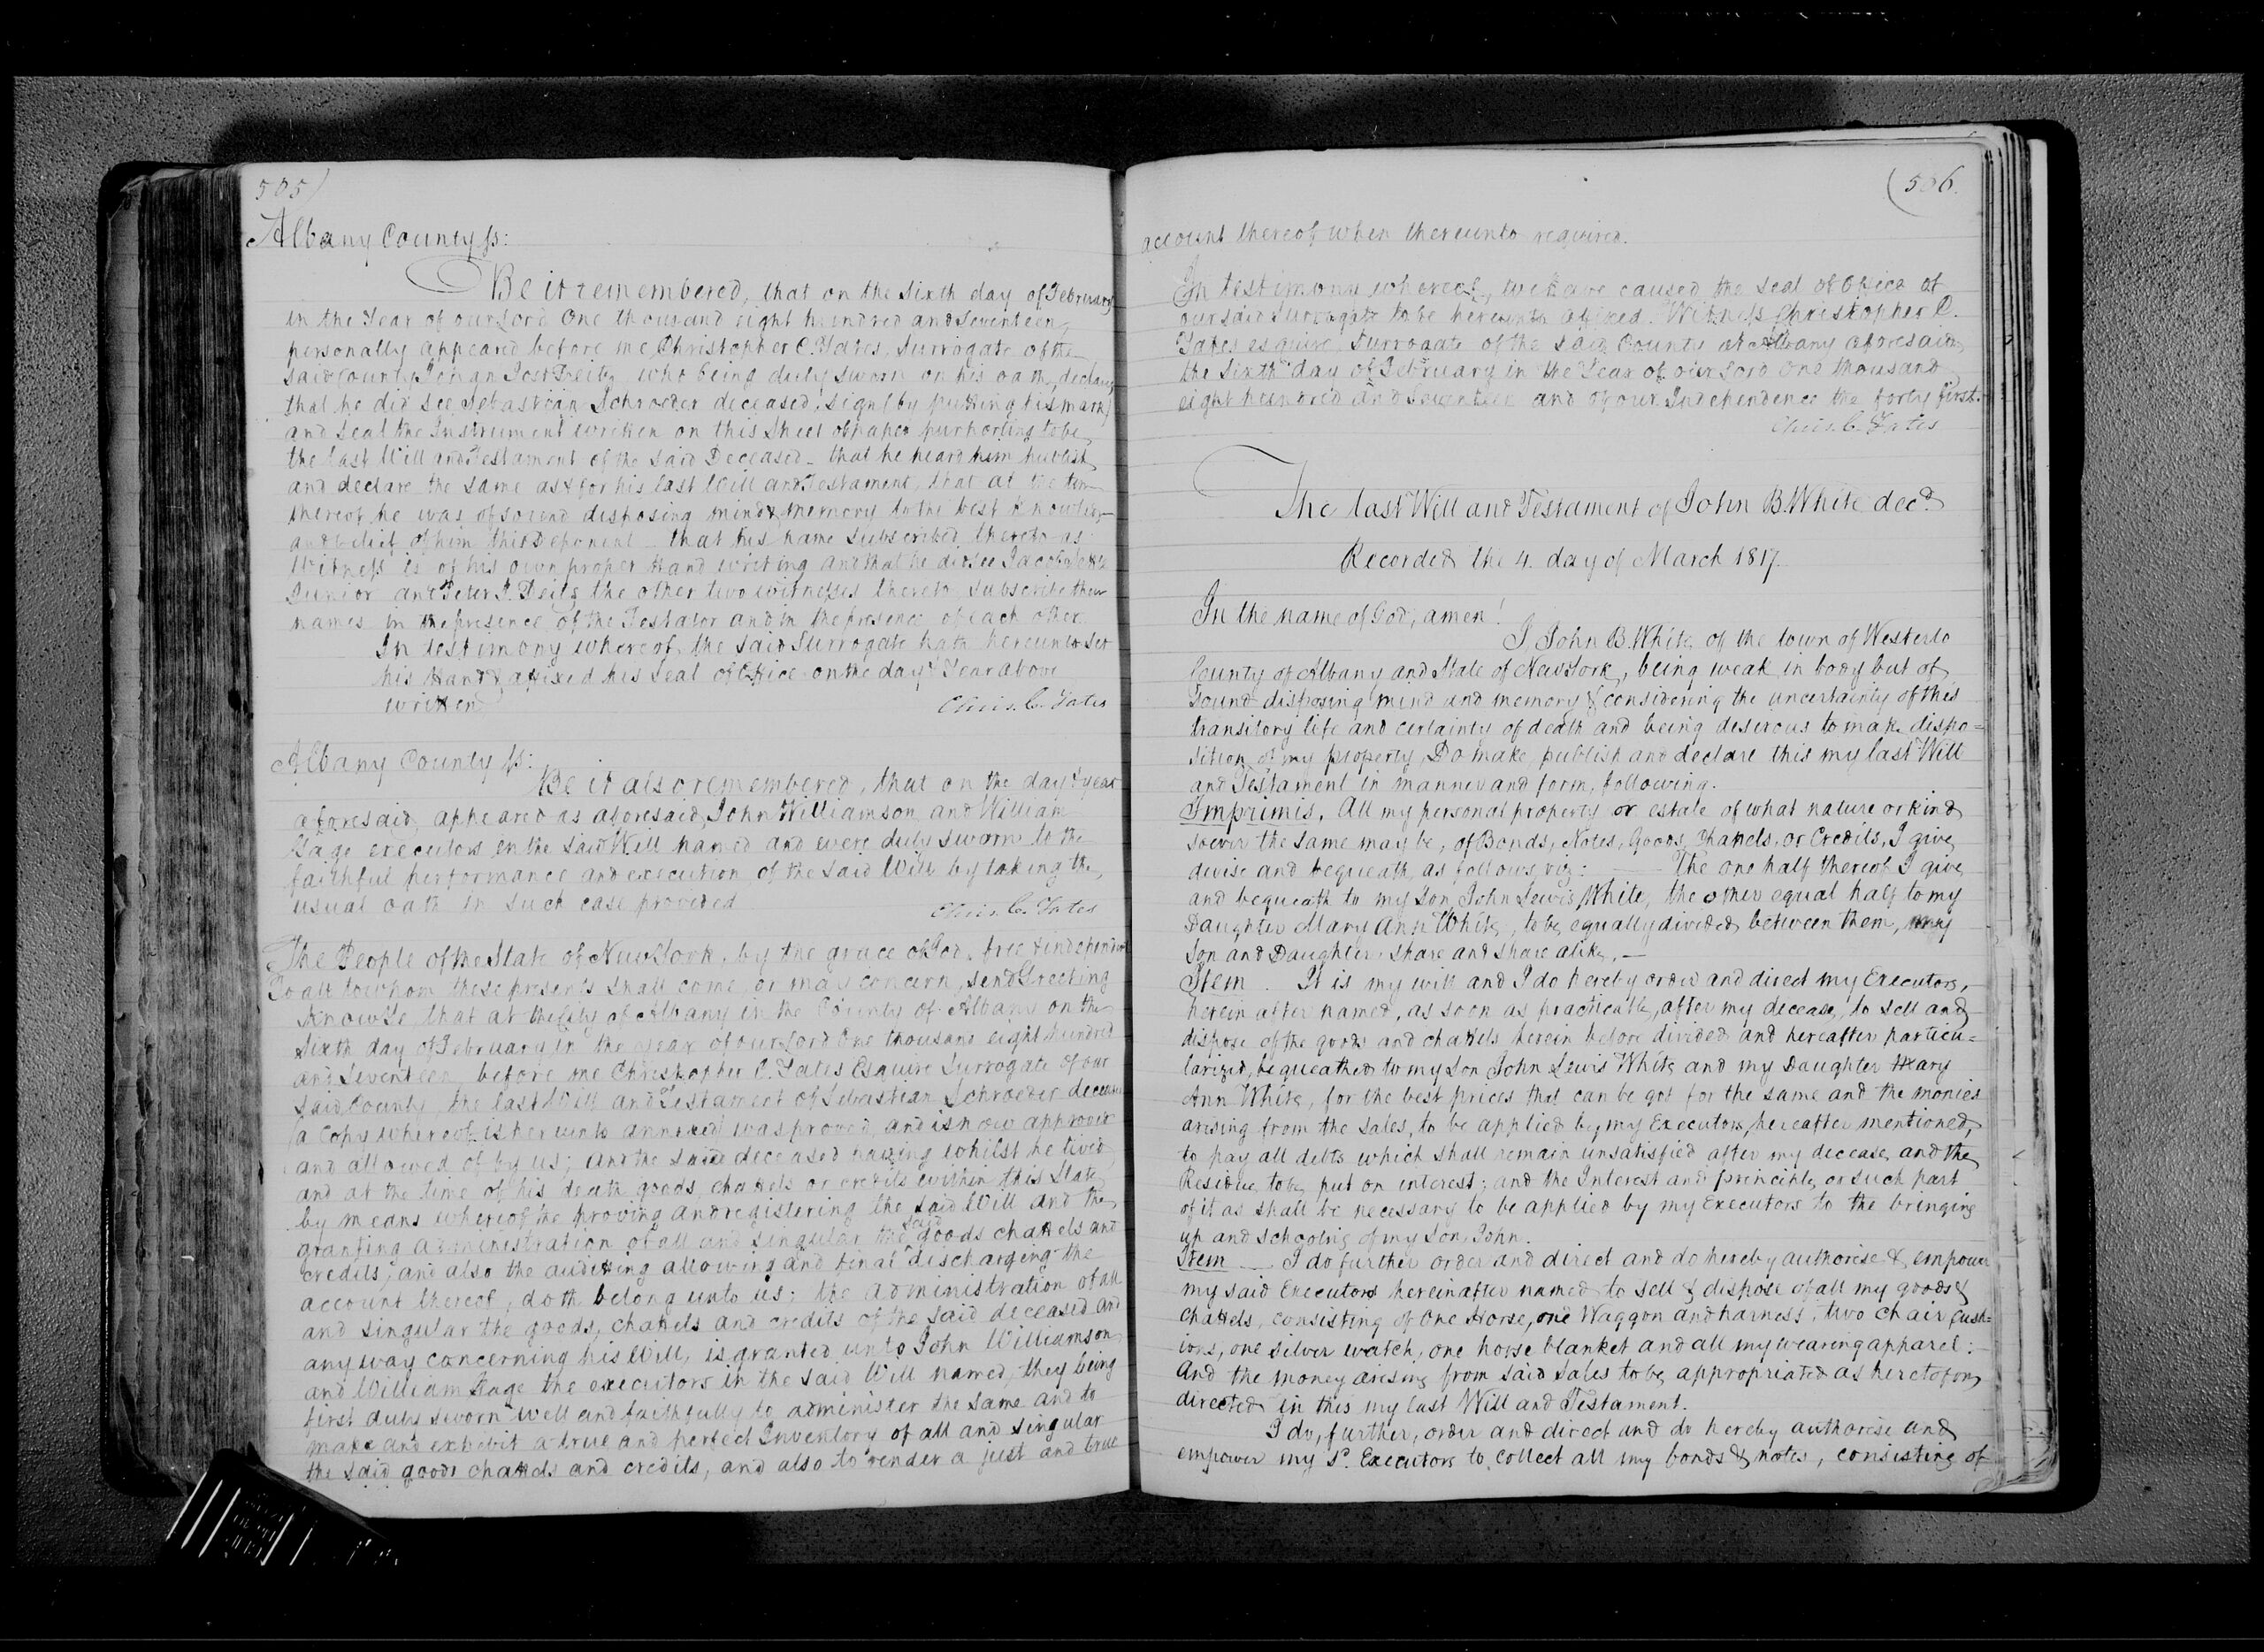 505)
Albany County ss:
Be it remembered, that on the sixth day of February
in the Year of our Lord One thousand eight hundred and Seventeen,
personally appeared before me, Christopher C. Yates, Surrogate of the
said County, Johan Jost Deitz, who being duly sworn on his oath, declares
that he did see Sebastean Schroeder deceased, sign (by putting his mark)
and seal the Instrument written on this Sheet of paper purporting to be
the last Will and Testament of the said Deceased - that he heard him publish
and declare the same as & for his last Will and Testament, that at the time
thereof he was of sound disposing mind & memory to the best Knowledge
and belief of him this Deponent - that his name Subscribed thereto as
Witness is of his own proper Hand writing and that he did see Jacob
Junior and Peter J. Deitz the other two witnesses thereto, subscribe their
names in the presence of the Testator and in the presence of each other.
In testimony whereof the said Surrogate hath hereunto set
his Hand & affixed his seal of Office on the day & Year above
written
Chris. C. Yates
Albany County ss:
Be it also remembered, that on the day & year
aforesaid, appeared as aforesaid, John Williamson and William
Gage executors in the said Will named and were duly sworn to the
faithful performance and execution of the said Will by taking the
usual oath in such case provided
Chris. C. Yates
The People of the State of New York, by the grace of God, free & independent
To all to whom these presents shall come or may concern, send Greeting
Know Ye that at the City of Albany in the County of Albany on the
sixth day of February in the year of our Lord One thousand eight hundred
and Seventeen before me Christopher C. Yates Esquire Surrogate of our
said County, the last Will and Testament of Sebastian Schroeder deceased
(a Copy whereof is hereunto annexed) was proved, and is now approved
and allowed of by us; and the said deceased having whilst he lived
and at the time of his death goods, chattels or credits within this State
by means whereof the proving and registering the said Will and the
granting administration of all and singular the said goods chattels and
credits, and also the auditing allowing and final discharging the
account thereof, doth belong unto us; the administration of all
and singular the goods, chattels and credits of the said deceased and
any way concerning his Will, is granted unto John Williamson
and William Gage the executors in the said Will named, they being
first duly sworn well and faithfully to administer the same and to
make and exhibit a true and perfect Inventory of all and singular
the said goods chattels and credits, and also to render a just and true
(506.
account thereof when thereunto required.
In testimony whereof, we have caused the seal of Office of
our said Surrogate to be hereunto affixed. Witness Christopher C.
Yates esquire Surrogate of the said County at Albany aforesaid
the sixth day of February in the Year of our Lord One thousand
eight hundred and Seventeen and of our Independence the forty first.
Chris. C. Yates
The last Will and Testament of John B. White decd.
Recorded the 4. day of March 1817.
In the name of God, amen!
I, John B. White, of the town of Westerlo
County of Albany and State of New York, being weak in body but of
Sound disposing mind and memory & considering the uncertainty of this
transitory life and certainty of death and being desirous to make dispo=
sition of my property, Do make, publish and declare this my last Will
and Testament in manner and form, following.
Imprimis. All my personal property or estate of what nature or kind
soever the same may be, of Bonds, Notes, Goods, Chattels, or Credits, I give,
devise and bequeath as follows, viz: The one half thereof I give
and bequeath to my Son, John Lewis White, the other equal half to my
Daughter Mary Ann White, to be equally divided between them, my
Son and Daughter, share and share alike. —
Item. It is my will and I do hereby order and direct my Executors,
herein after named, as soon as practicable, after my decease, to sell and
dispose of the goods and chattels herein before divided and hereafter particu=
larized, bequeathed to my Son John Lewis White and my Daughter Mary
Ann White, for the best prices that can be got for the same and the monies
arising from the sales, to be applied by my Executors, hereafter mentioned,
to pay all debts which shall remain unsatisfied after my decease, and the
Residue, to be put on interest; and the Interest and principle, or such part
of it as shall be necessary to be applied by my Executors to the bringing
up and schooling of my Son, John.
Item — I do further order and direct and do hereby authorise & empower
my said Executors hereinafter named to sell & dispose of all my goods &
Chattels, consisting of One Horse, one Waggon and harness, two chair cush=
ions, one silver watch, one horse blanket and all my wearing apparel:
And the money arising from said sales to be appropriated as heretofore
directed in this my last Will and Testament.
I do, further, order and direct and do hereby authorise and
empower my sd. Executors to collect all my bonds & notes, consisting of